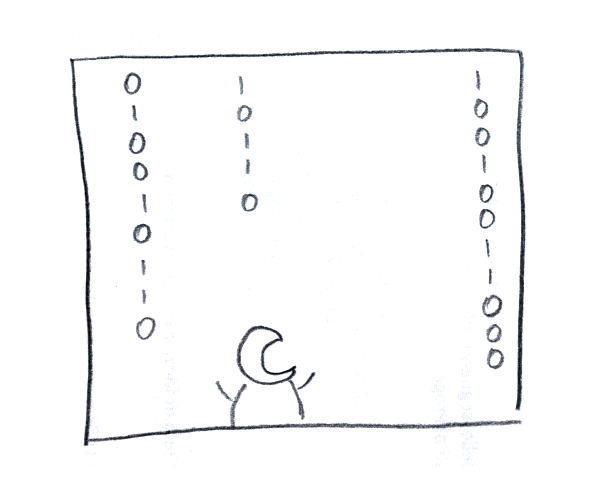 010010110
10110
10010011000